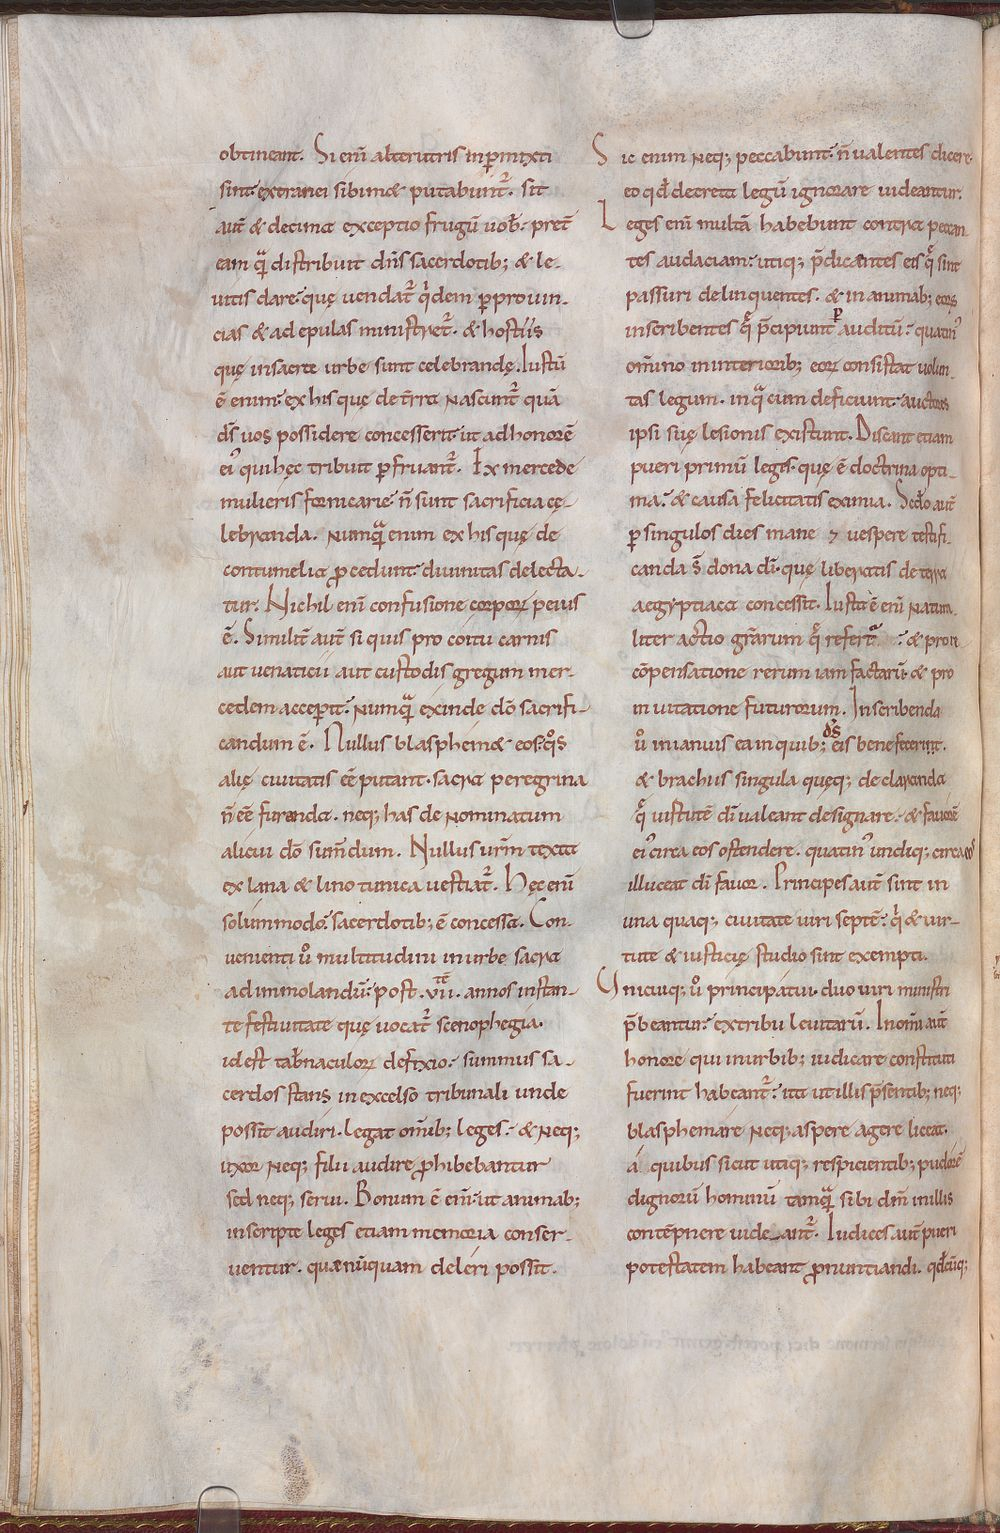 obtineant. Si enī alterutris inp̄mixti
sint extranei sibimet putabunt᷑. sit
aut̄ & decima exceptio frugū uob̄. pret̄
eam q̄ distribuit dn̄s sacerdotib; & le-
uitis dare. quę uendat᷑ q̇dem ꝑ prouin-
cias & ad epulas ministret᷑. & hostiis
quę in sacra urbe sunt celebrandę. Iustū
ē enim ex his quę de t̄rra nascunt᷑ quā
ds̄ uos possidere concesserit ut ad honorē
ei᾽ qui hęc tribuit ꝑfruant᷑. Ex mercede
mulieris fornicarie n̄ sunt sacrificia cę-
lebranda. Numq̄ enim ex his quę de
contumelia ꝓcedunt diuinitas delecta-
tur. Nichil enī confusione corporꝝ peius
ē. Similit̄ aut̄ si quis pro coitu carnis
aut uenaticii aut custodis gregum mer-
cedem acceperit. Numq̄ exinde dō sacrifi-
candum ē. Nullus blasphemet eos. q̊s
alię ciuitatis eē putant. sacra peregrina
n̄ eē furanda. neq; has de nominatum
alicui dō sum̄dum. Nullus ur̄m texta
ex lana & lino tunica uestiat᷑. Hęc enī
solummodo sacerdotib; ē concessa. Con-
uenienti ů multitudini in urbe sacra
ad immolandū post .vii.tē annos instan-
te festiuitate quę uocat᷑ scenophegia.
id est tab̄naculoꝝ defixio. summus sa-
cerdos stans in excelso tribunali unde
possit audiri. legat om̄ib; leges. & neq;
uxor neq; filii audire ꝓhibebantur
sed neq; serui. Bonum ē enī ut animab;
inscripte leges etiam memoria conser-
uentur. quæ nūquam deleri possit.
Sic enim neq; peccabunt n̄ ualentes dicere.
eo qd̄ decreta legū ignorare uideantur.
Leges enī multā habebunt contra peccan
tes audaciam. utiq; p̄dicantes eis q̄ sint
passuri delinquentes. & in animab; eoꝝ
inscribentes q̄ p̄cipiunt ꝑ auditū. quatin᾽
om̄ino in interiorib; eoꝝ consistat uolun-
tas legum. in q̄ cum deficiunt auctores
ipsi suę lesionis existunt. Discant etiam
pueri primū leges. quę ē doctrina opti-
ma. & causa felicitatis eximia. Sed̄o aut̄
ꝑ singulos dies mane ⁊ uespere testifi-
canda s̄ dona dī. quę liberatis de terra
aegyptiaca concessit. Iusta ē enī natura-
liter actio gr̄arum q̄ refert᷑ & pro n̄
cōpensatione rerum iam factarū & pro
inuitatione futurorum. Inscribenda
ů in ianuis ea in quib; ds̄ eis benefecerint.
& brachiis singula quęq; declaranda
q̄ uirtutē dī ualeant designare. & fauorē
ei᾽ circa eos ostendere. quatin᾽ undiq; circa eos
illuceat dī fauor. Principes aut̄ sint in
una quaq; ciuitate uiri septē. q̇ & uir-
tute & iusticię studio sint exempti.
Unicuiq; ů principatui. duo uiri ministri
p̄beantur. ex tribu leuitarū. In om̄i aut̄
honore qui in urbib; iudicare constituti
fuerint habeant᷑. ita ut illis p̄sentib; neq;
blasphemare neq; aspere agere liceat.
a quibus sicut utiq; respicientib; pudorē
dignorū hominū tamq̄ sibi dn̄m in illis
contēpnere uideant᷑. Iudices aut̄ pueri
potestatem habeant ꝓnuntiandi. qd̄cūq;